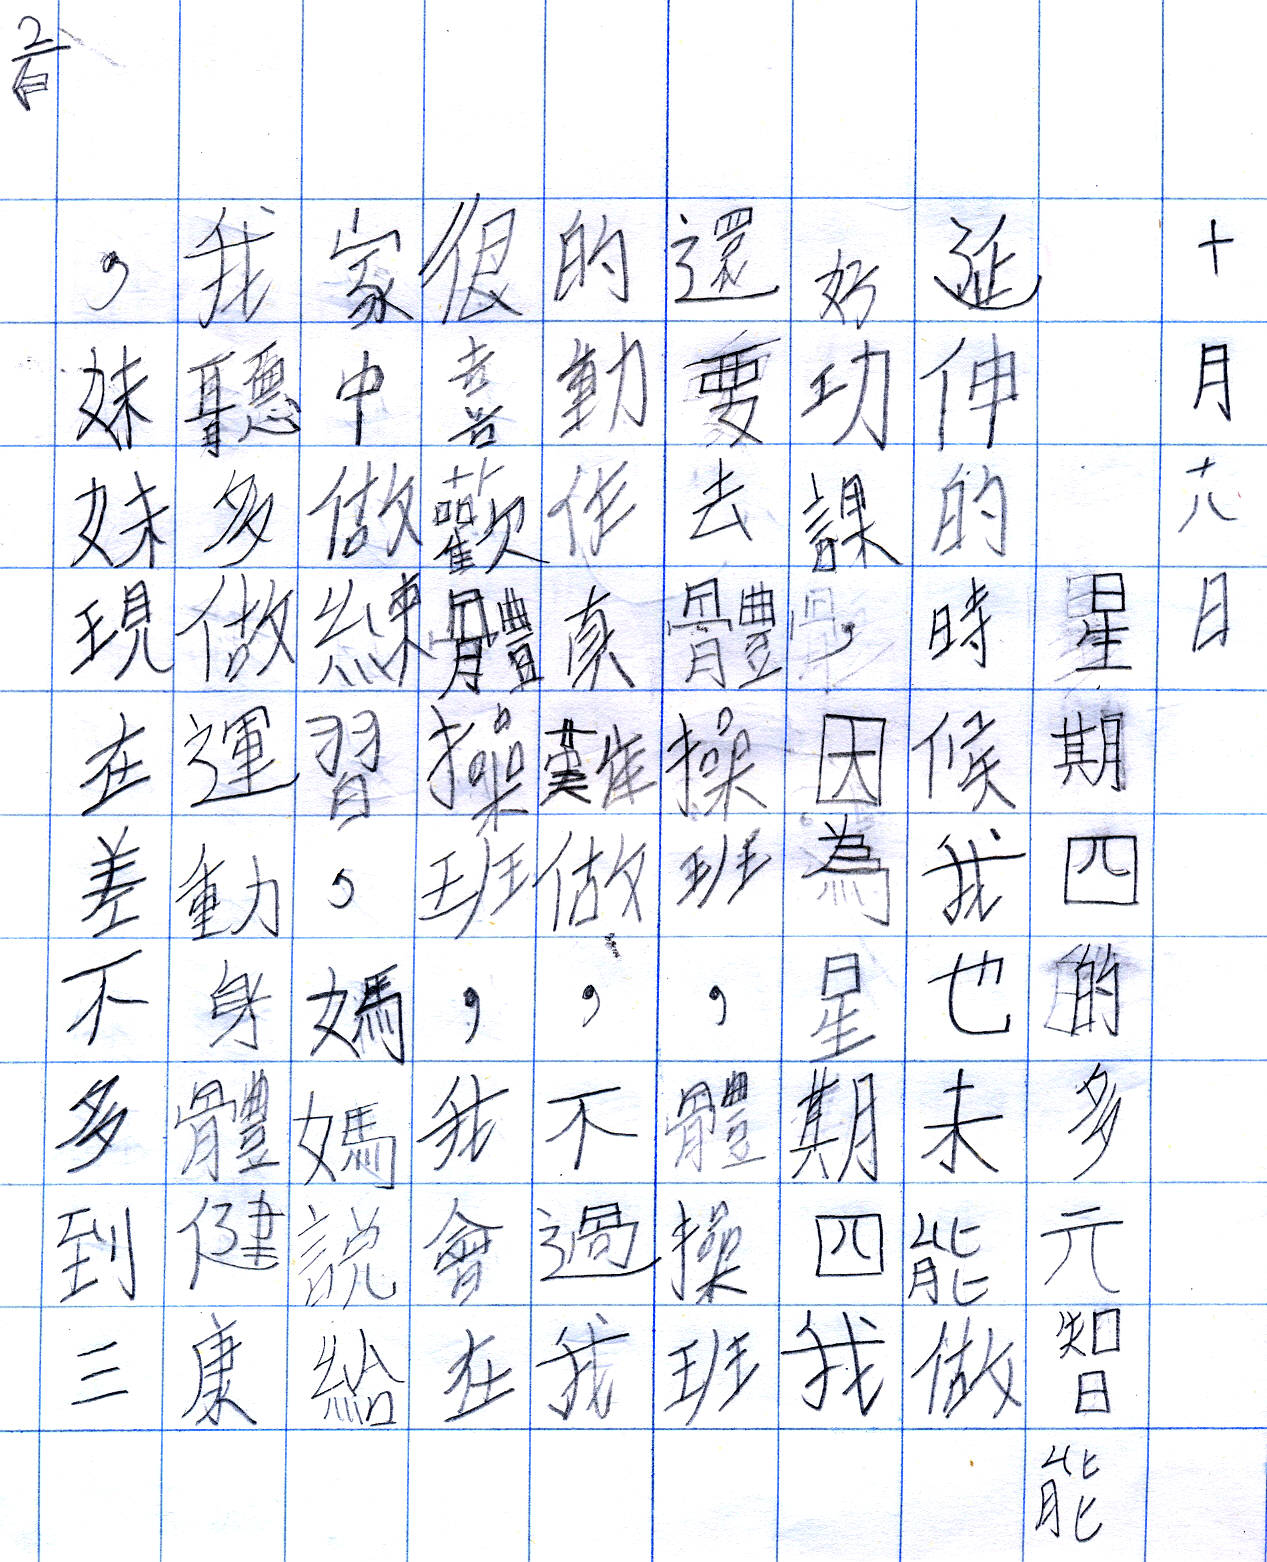 十月十八日
星期四的多元智能
延伸的時候我也未能做
好功課,因為星期四我
還要去體操班,體操班
的動作真難做,不過我
很喜歡體操班,我會在
家中做練習,媽媽說給
我聽多做運動身體健康
,妹妹現在差不多到三
2